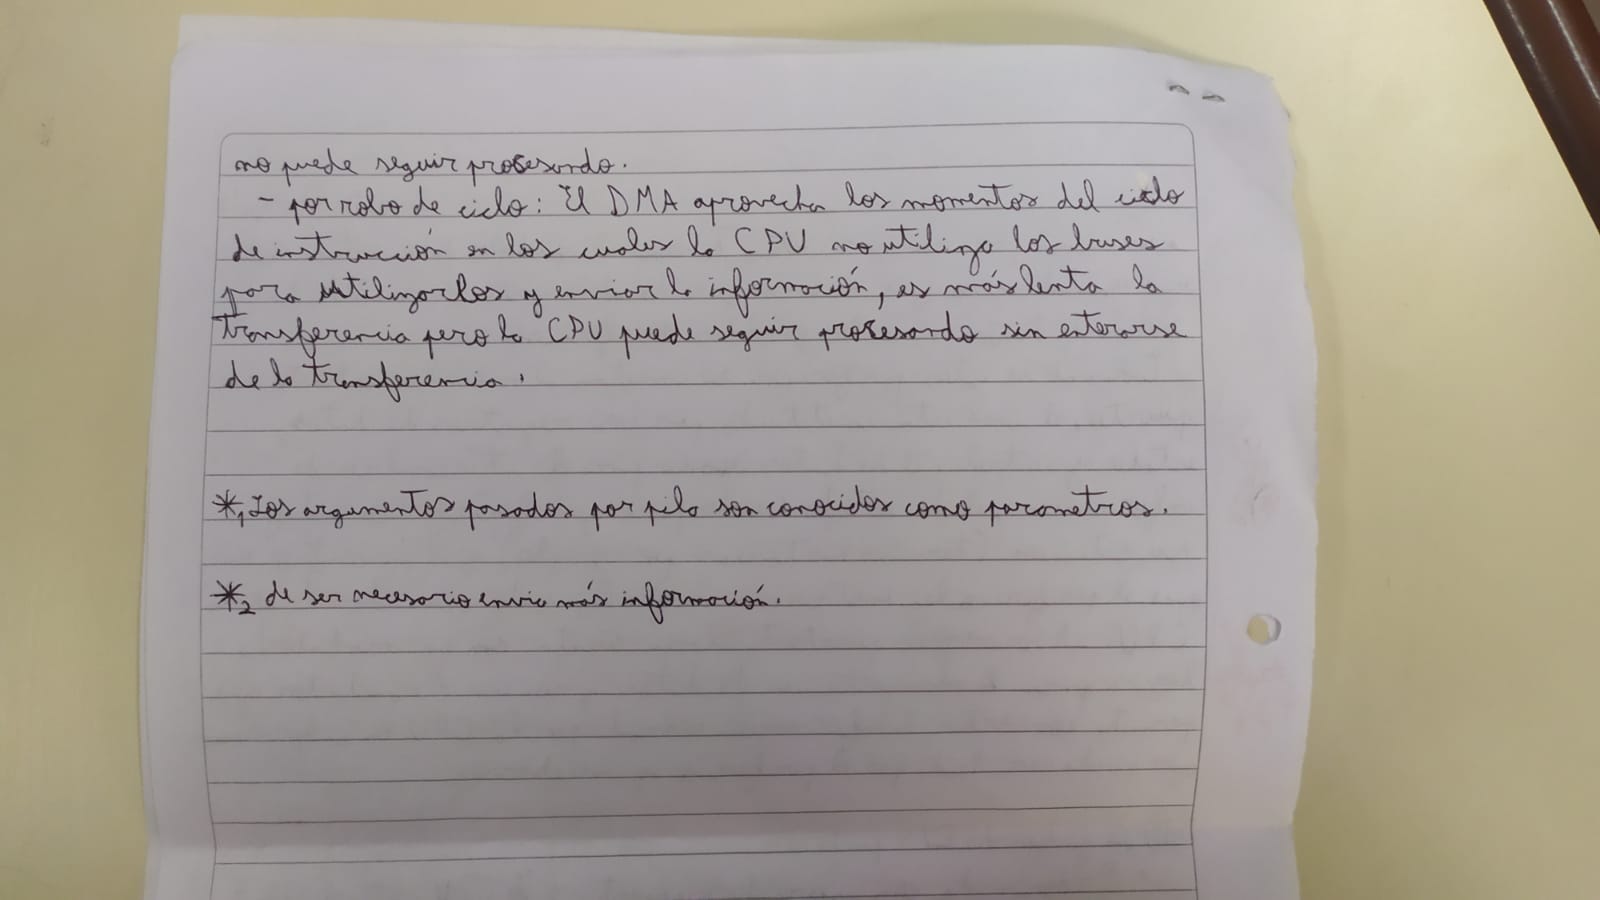 no puede seguir procesando.
- por robo de ciclo: El DMA aprovecha los momentos del ciclo
de instrucción en los cuales la CPU no utiliza los buses
para utilizarlos y enviar la información, es más lenta la
transferencia pero la CPU puede seguir procesando sin enterarse
de la transferencia.
*1 Los argumentos pasados por pila son conocidos como parametros.
*2 de ser necesario envie más información.